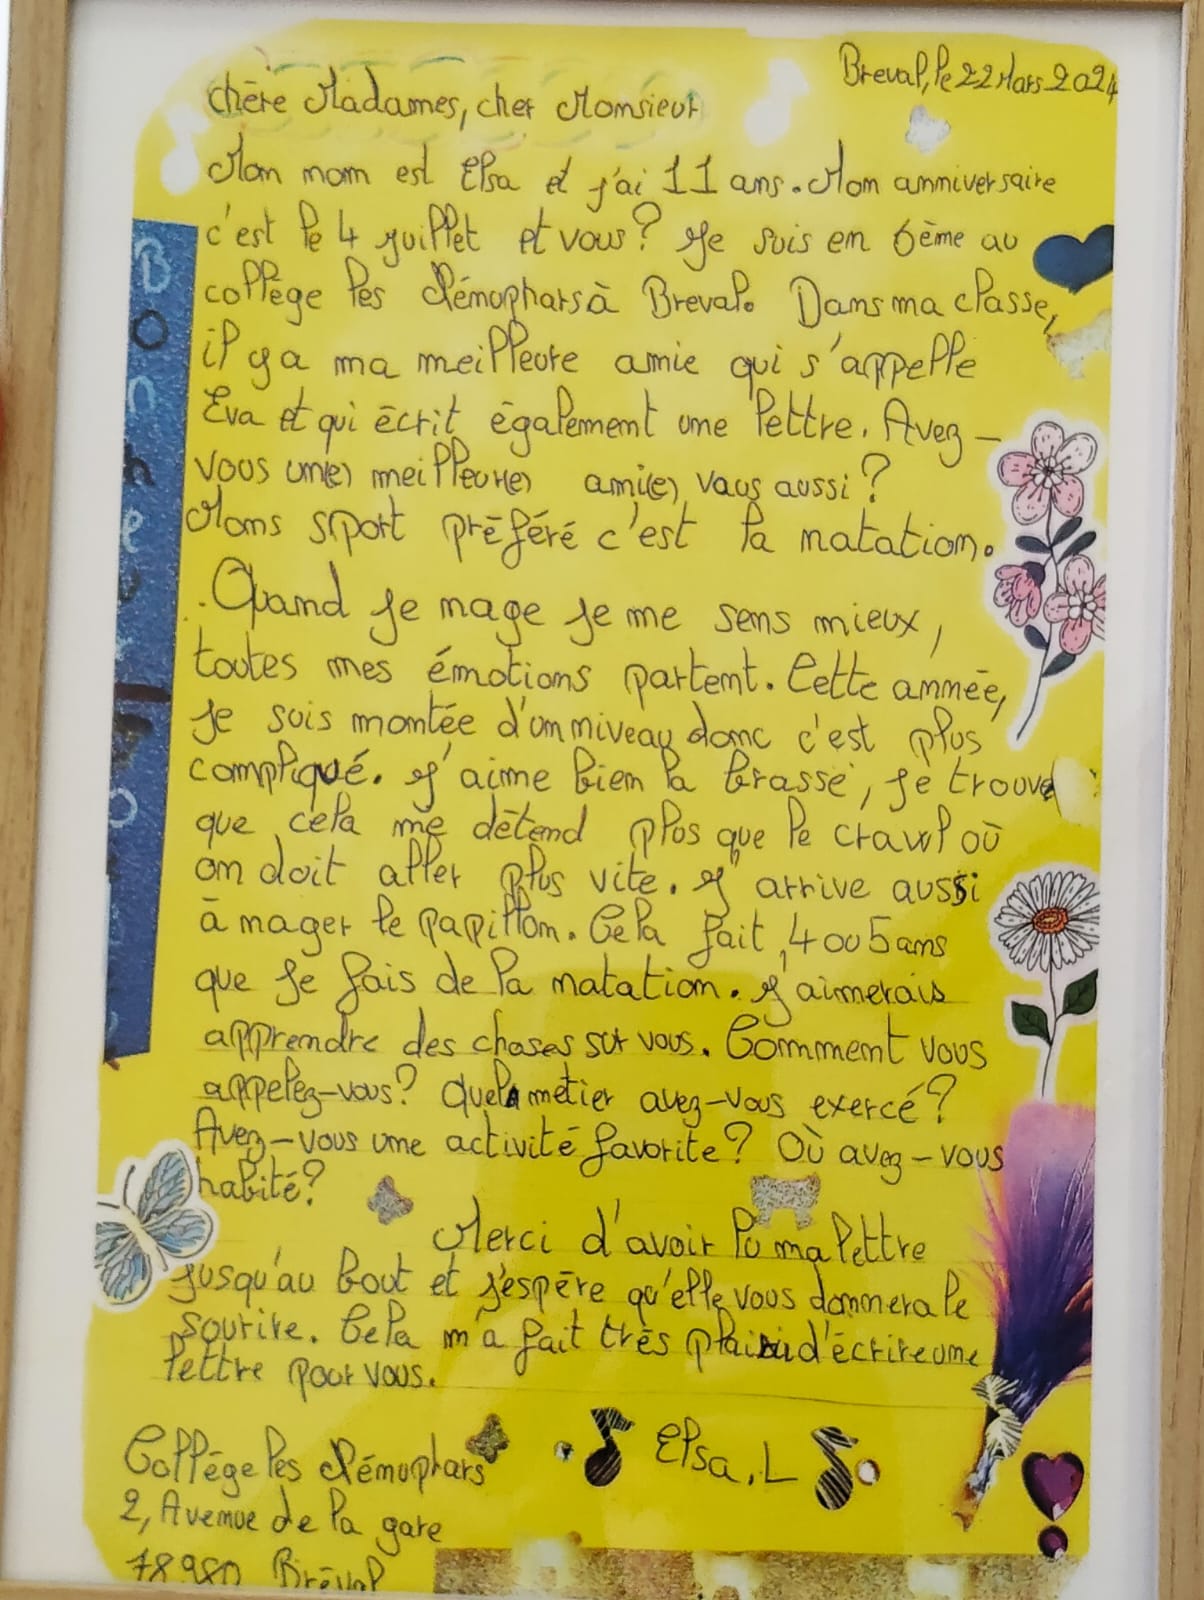 Breval, le 22 Mars 2024
Chère Madames, cher Monsieur
Mon nom est Elsa et j'ai 11 ans. Mon anniversaire
c'est le 4 juillet et vous? Je suis en 6ème au
collège les Nénuphars à Breval. Dans ma classe,
il y a ma meilleure amie qui s'appelle
Eva et qui écrit également une lettre. Avez-
vous un(e) meilleur(e) ami(e) vous aussi?
Mons sport préféré c'est la natation.
Quand je nage je me sens mieux,
toutes mes émotions partent. Cette année,
je suis montée d'un niveau donc c'est plus
compliqué. J'aime bien la brasse, je trouve
que cela me détend plus que le crawl où
on doit aller plus vite. J'arrive aussi
à nager le papillon. Cela fait 4 ou 5 ans
que je fais de la natation. J'aimerais
apprendre des choses sur vous. Comment vous
appelez-vous? Quel métier avez-vous exercé?
Avez-vous une activité favorite? Où avez-vous
habité?
Merci d'avoir lu ma lettre
jusqu'au bout et j'espère qu'elle vous donnera le
sourire. Cela m'a fait très plaisir d'écrire une
lettre pour vous.
Elsa.L
Collège les Nénuphars
2, Avenue de la gare
78980 Bréval
Bonheur